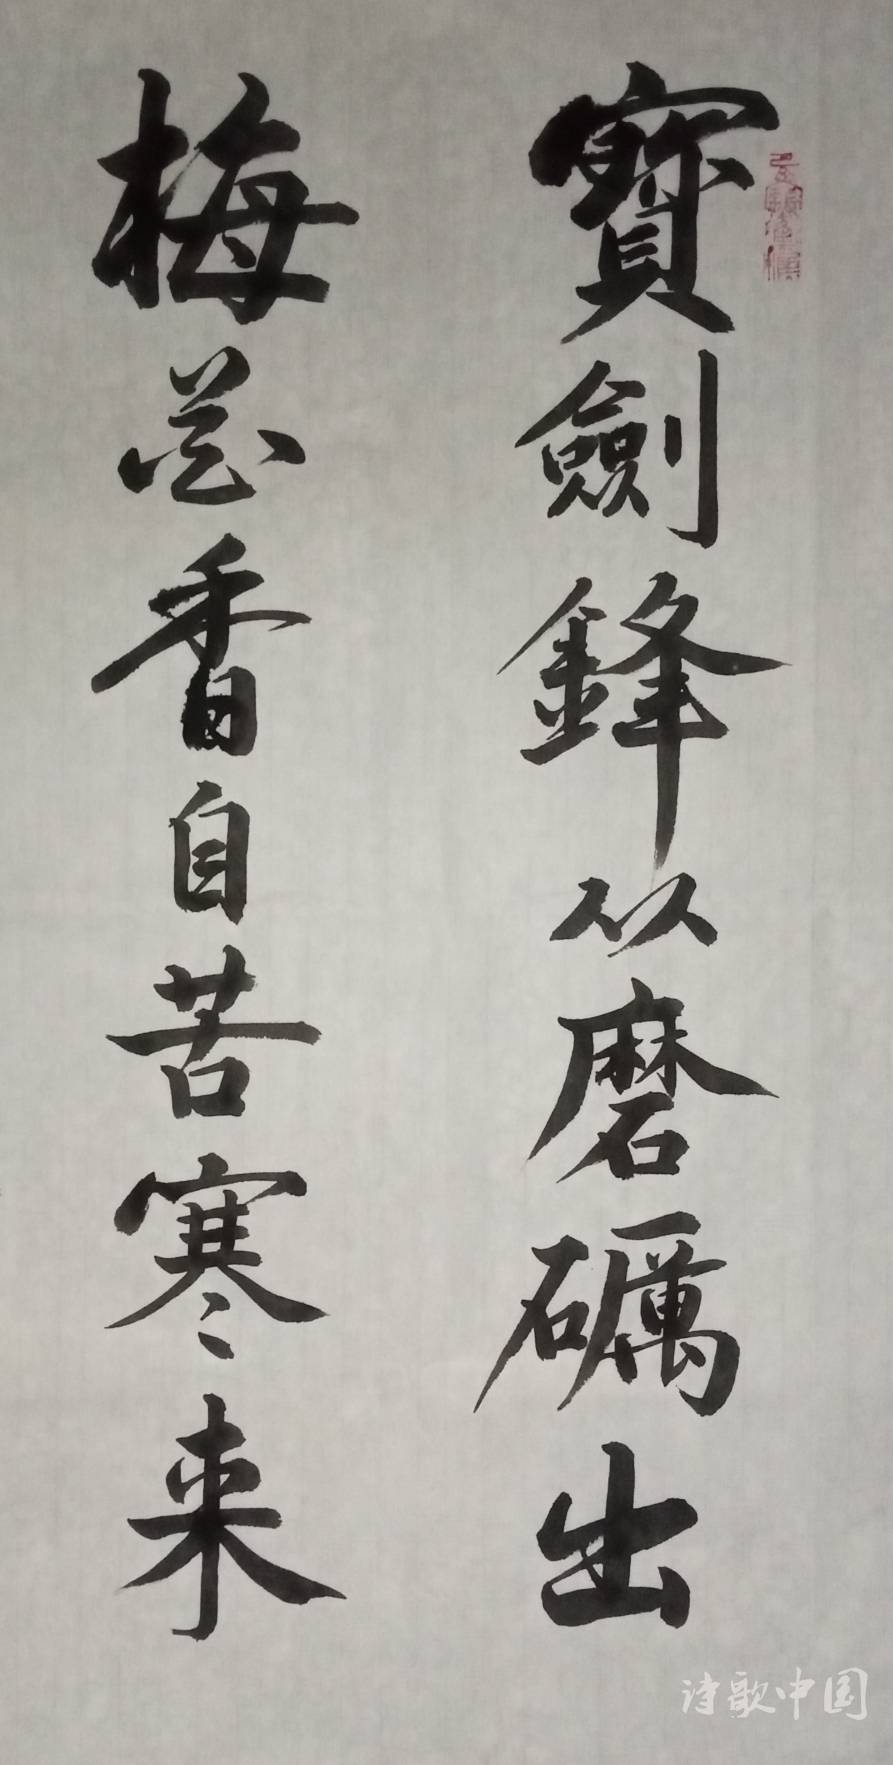 寶劍鋒从磨礪出
梅花香自苦寒来
诗歌中国